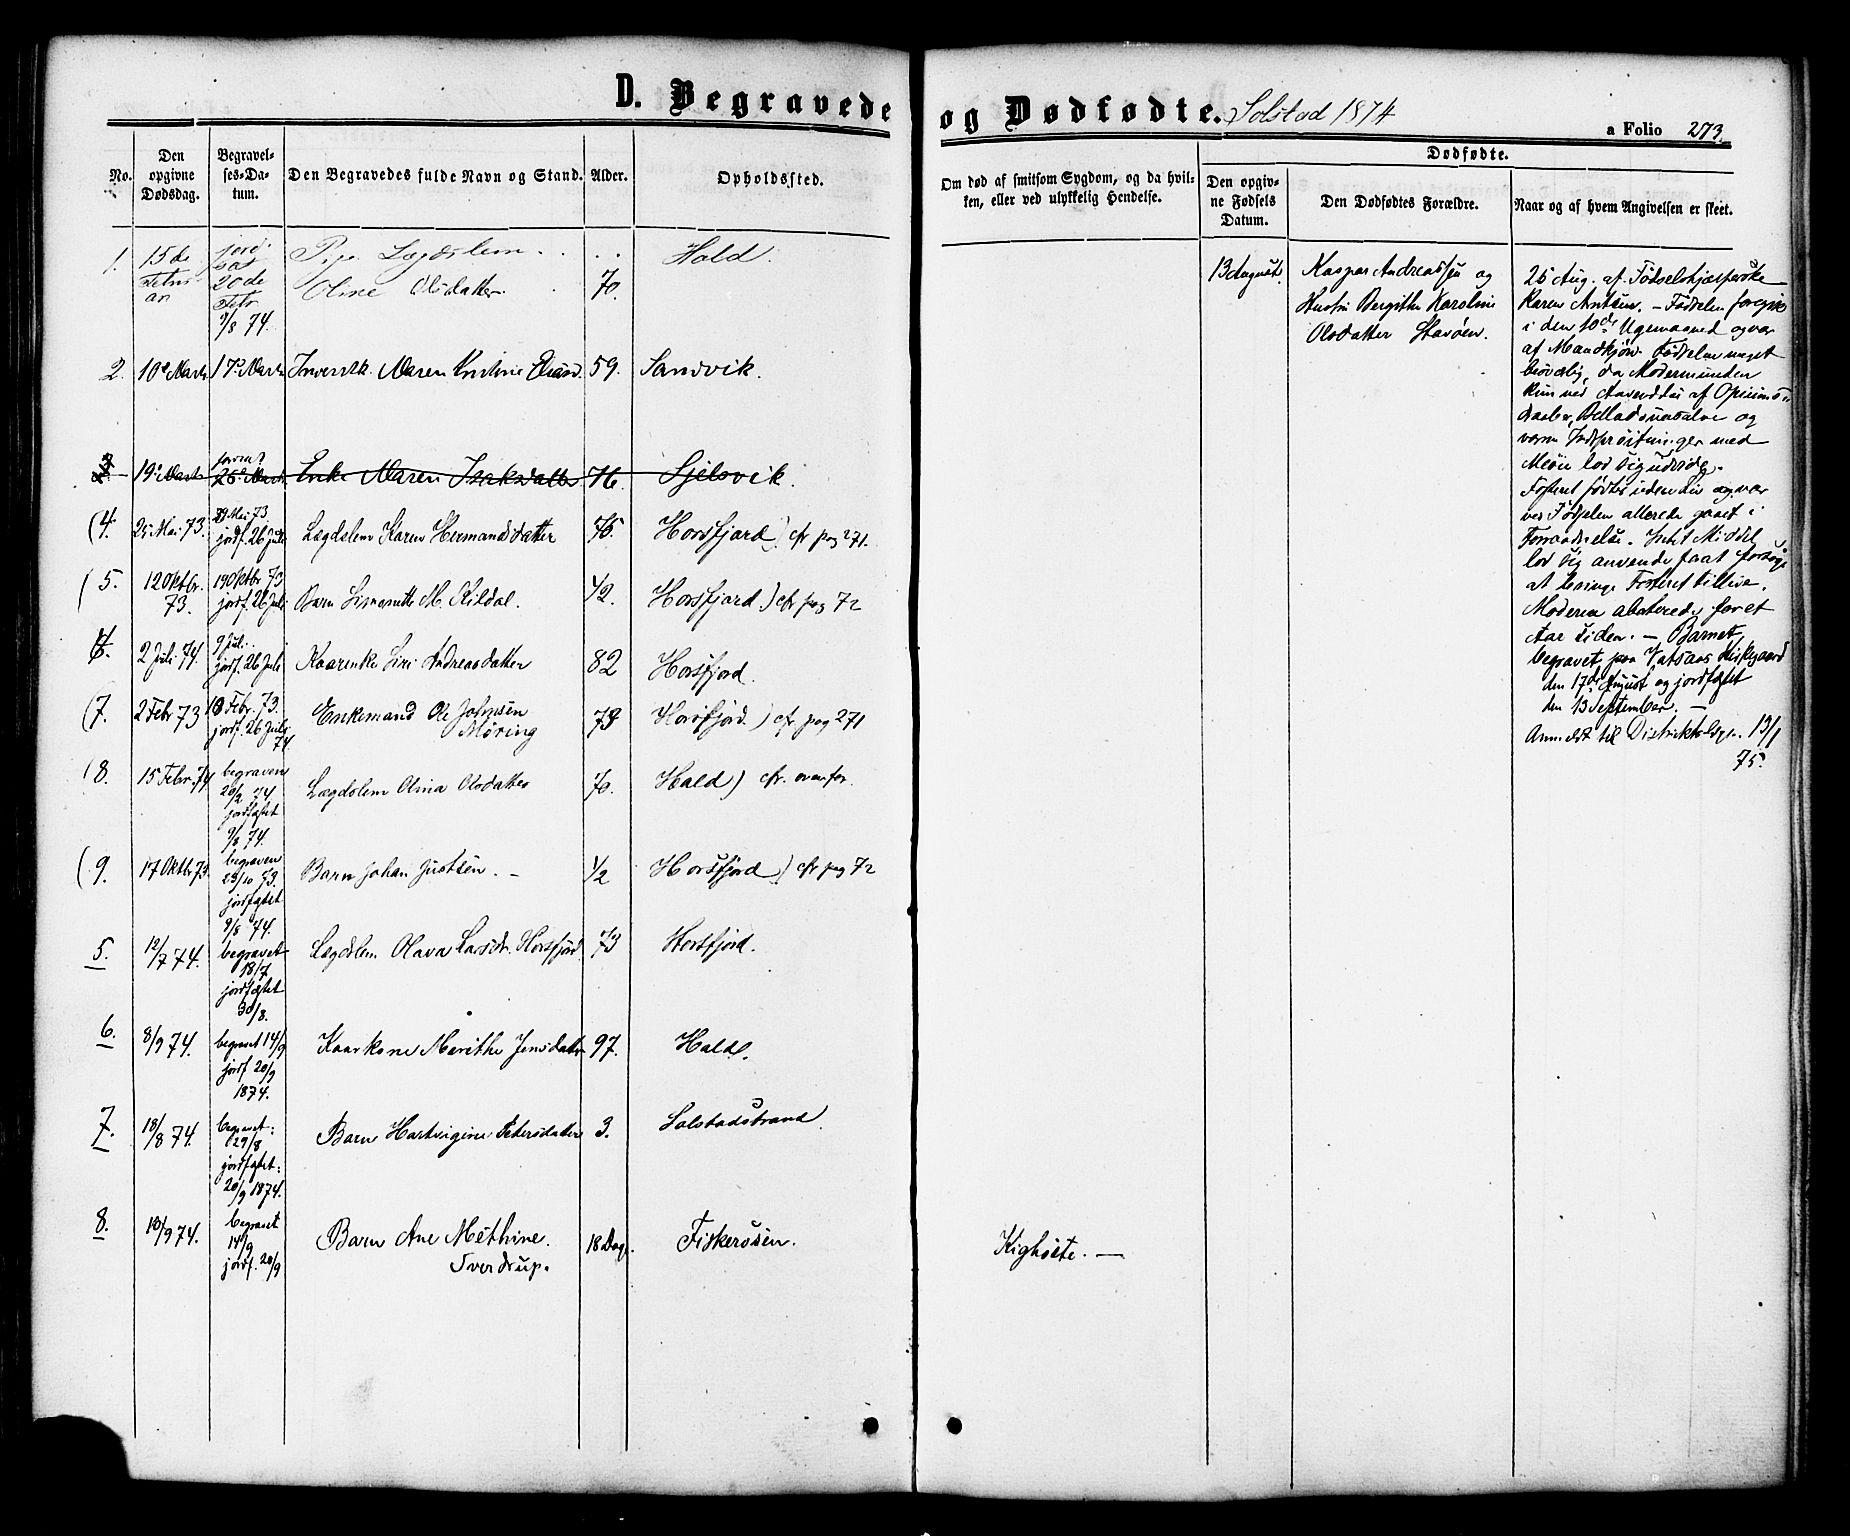 D. Begravede og Dødfødte. Solstad 1874
a Folio 273.
No.
Den opgivne Dødsdag.
Begravelses-Datum.
Den Begravedes fulde Navn og Stand.
Alder.
Opholdssted.
Om død af smitsom Sygdom, og da hvilken, eller ved ulykkelig Hendelse.
Dødfødte.
Den opgivne Fødsels Datum.
Den Dødfødtes Forældre.
Naar og af hvem Angivelsen er skeet.
1. 15de Februar 20de Febr 9/8 74. Pige Lægdslem Oline Olsdatter. 70. Hald.
2. 10de Marts 17de Marts Maren 59. Sandvik.
19de Marts Enke Maren Isaksdatter 76. Sjelsvik.
(4. 25 Mai 73. 29 Mai 73 jordf. 26 Juli Lægdslem Karen Hermandsdatter 75. Horsfjord.) cfr pag 271.
(5. 12 Oktbr. 73. 19 Oktbr 73 jordf. 26 Juli Barn M. Kildal. 1/2. Horsfjord) cfr pag 72
2 Juli 74. 9 Juli. jordf. 26 Juli Kaarenke Siri Andreasdatter 82 Horsfjord.
(7. 2 Febr 73 Febr. 73. jordf. 26 Juli 74 Enkemand Ole Johnsen Møring 78 Horsfjord.) cfr. pag 271
(8. 15 Febr. 74 begraven 20/2 74 jordfæstet 9/8 74. Lægdslem Olina Olsdatter 70. Hald) cfr. ovenfor.
(9. 17 Oktbr 73. begraven 23/10 73. jordfæstet 9/8 74. Barn Johan Justsen. 1/2 Horsfjord) cfr pag 72
5. 12/7 74. begravet 18/7 jordfæstet 30/8. Lægdslem Olava Larsdr. Horsfjord 73 Horsfjord.
6. 8/9 74. begravet 14/9 jordf 20/9 1874. Kaarkone Merithe Jensdatter 97. Hald.
7. 18/8 74. begravet: 29/8 jordfæstet: 20/9 1874. Barn Hartvigine Petersdatter 3. Solstadstrand.
8. 10/9 74. begravet 14/9 jordf. 20/9 Barn Ane Methine Sverdrup. 18 Dage. Fiskerosen. Kighoste. —
13 August.
Kaspar Andreassen og
Hustru Bergithe Karoline
Olsdatter
25 Aug. af Fødselshjælperske
Karen Antsen. — Fødselen foregik
i den 10de Ugemaaned og var
af Mandkjøn. Fødselen meget
besværlig, da Modermunden
kun ved Anvendelse af Opiums-
draaber, Belladonnasalve og
varme Indsprøitninger med
lod sig udvide.
Fosteret fødtes uden Liv og var
ved Fødselen allerede gaaet i
Forraadnelse. Intet Middel
lod sig anvende paa at forsøge
at bringe Fosteret tillive.
Moderen aborterede for et
Aar siden. — Barnet
begravet paa Vatsaas Kirkegaard
den 17de August og jordfæstet
den 13 September. —
Anmeldt til Distriktslægen 13/1
75.